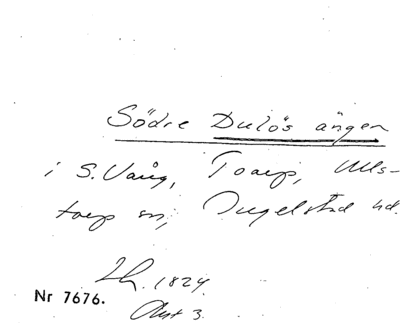 Södre Dulös ängen
i S. Vång, Toarp, Ulls-
torp sn, Ingelstad hd.
1824.
Nr 7676.
Akt 3.